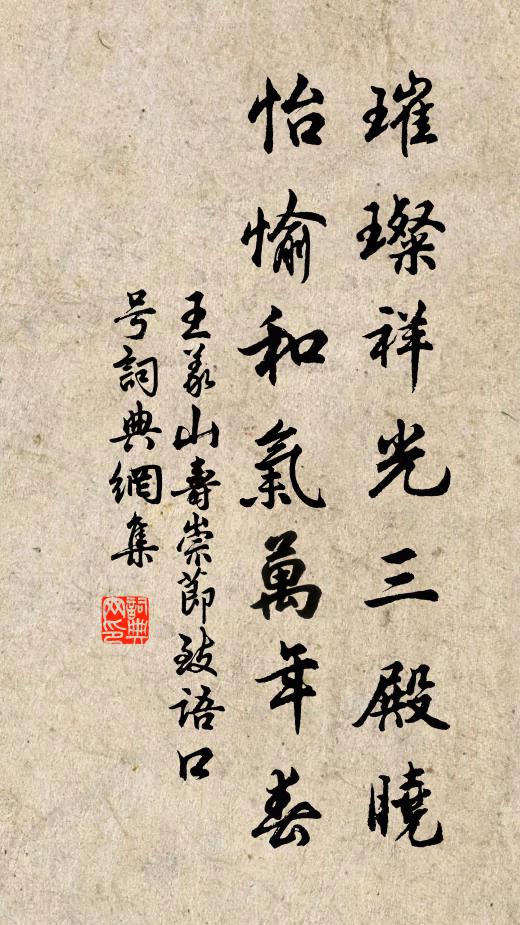 璀璨祥光三殿曉
怡愉和氣萬年春
王義山壽崇節致語口
号詞典網集
詞典网印